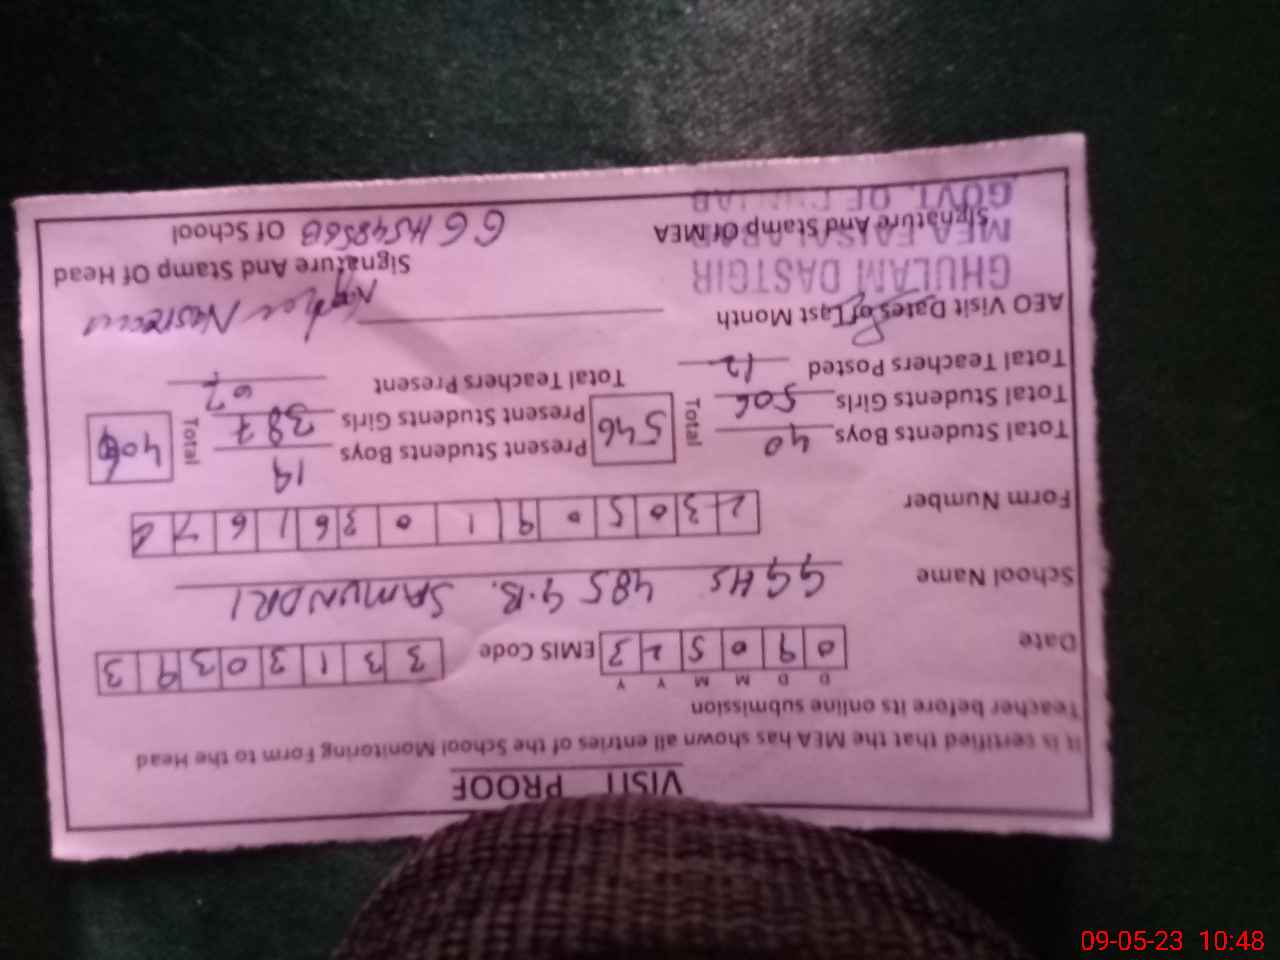 VISIT PROOF
It is certified that the MEA has shown all entries of the School Monitoring Form to the Head
Teacher before its online submission
D D M M Y Y
Date 0 9 0 5 2 3 EMIS Code 3 3 1 3 0 3 9 3
School Name GGHS 485 G.B. SAMUNDRI
Form Number 2 3 0 5 0 9 1 0 3 6 1 6 7
Total Students Boys 40 Total 546 Present Students Boys 19 Total 406
Total Students Girls 506 Present Students Girls 387
Total Teachers Posted 12 Total Teachers Present 07
AEO Visit Dates of Last Month
GHULAM DASTGIR
Signature And Stamp Of Head
MEA FAISALABAD
Signature And Stamp Of MEA GGHS485GB Of School
GOVT. OF PUNJAB
09-05-23 10:48